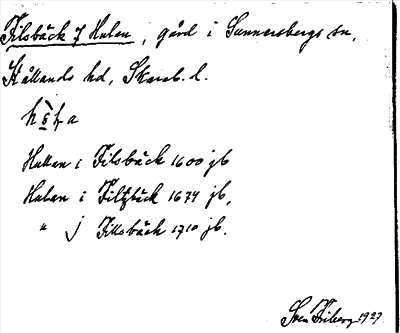 Filsbäck f Hulan, gård i Sunnersbergs sn,
Kållands hd, Skarab. l.
Hullan i Filsbäck 1600 jb
Hulan i Filtzbäck 1674 jb,
" j Fillsbäck 1710 jb.
Sven Friberg 1927